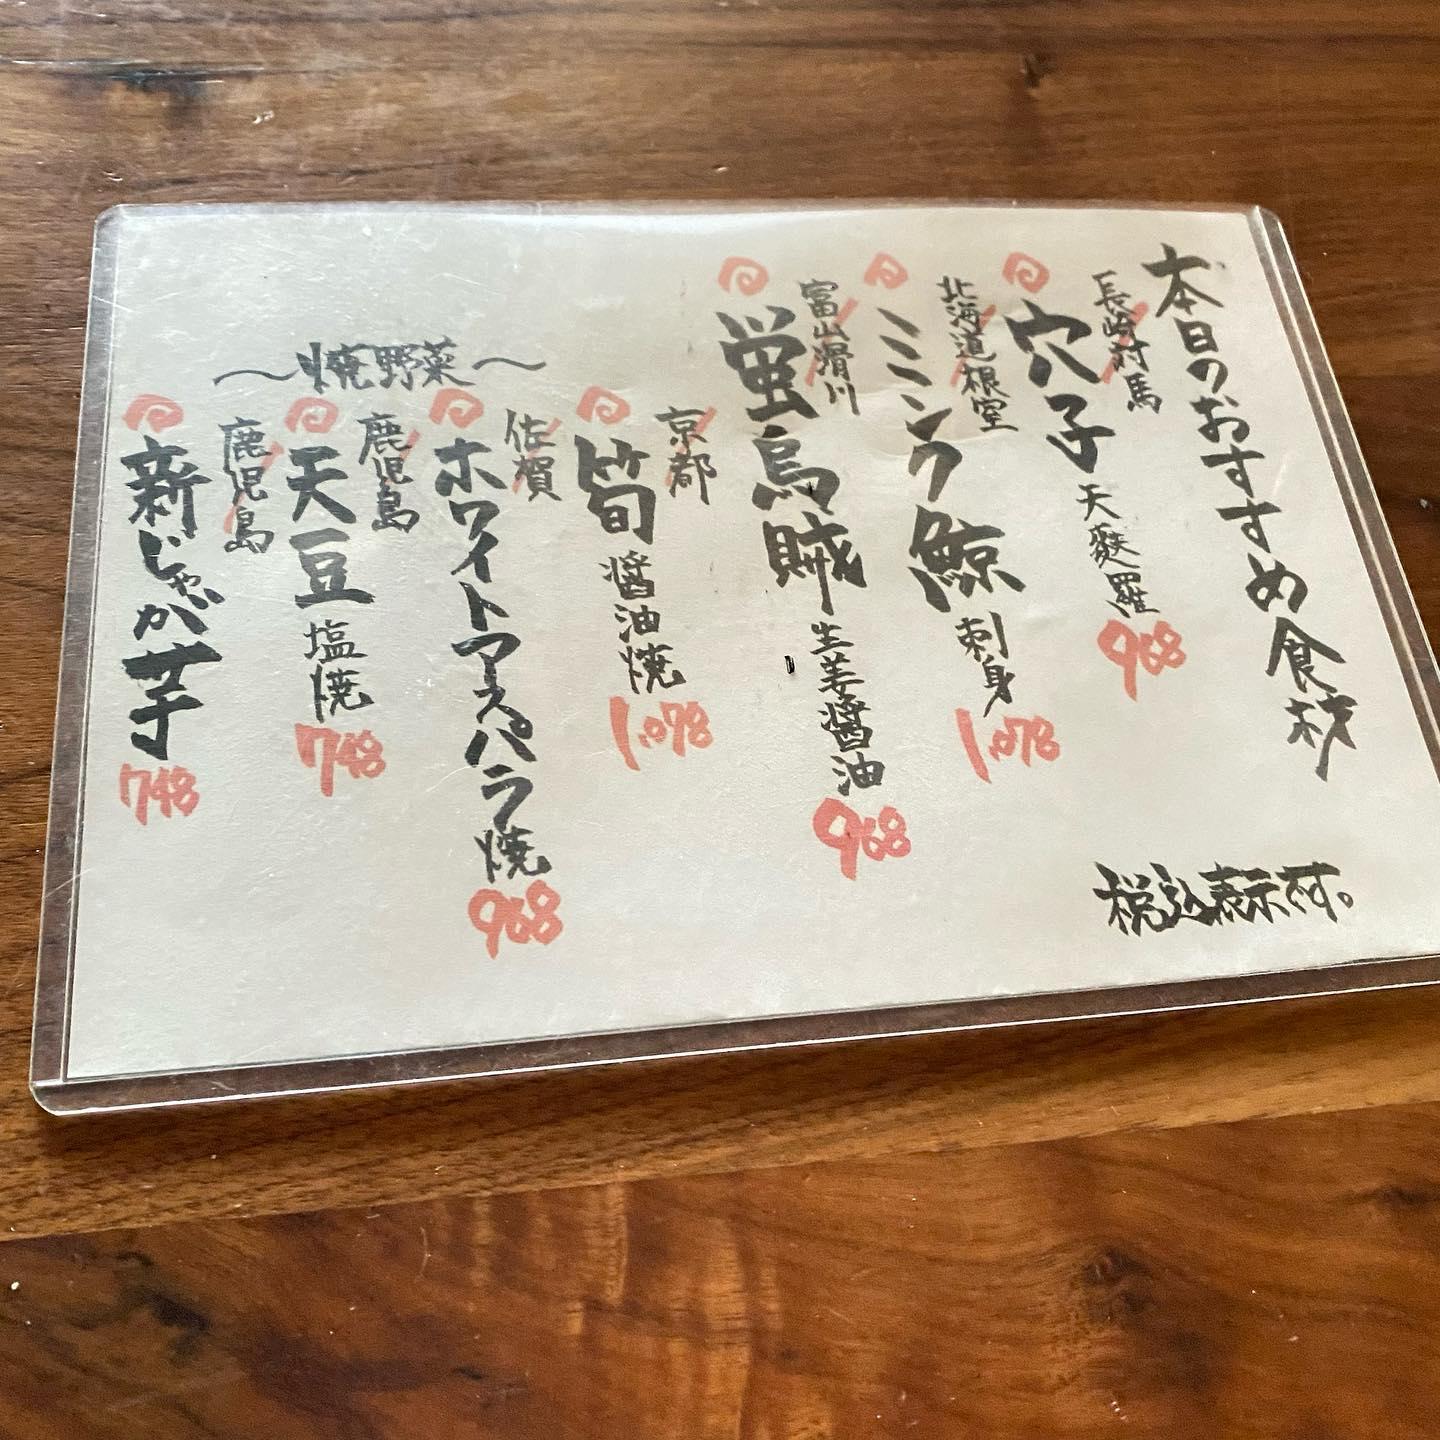 本日のおすすめ食材
長崎対馬
穴子 天麩羅 968
北海道根室
ミンク鯨 刺身 1.078
富山滑川
蛍烏賊 生姜醤油 968
京都
筍 醤油焼 1.078
佐賀
ホワイトアースパラ焼 968
鹿児島
天豆 塩焼 748
鹿児島
新じゃが芋 748
〜焼野菜〜
税込表示です。